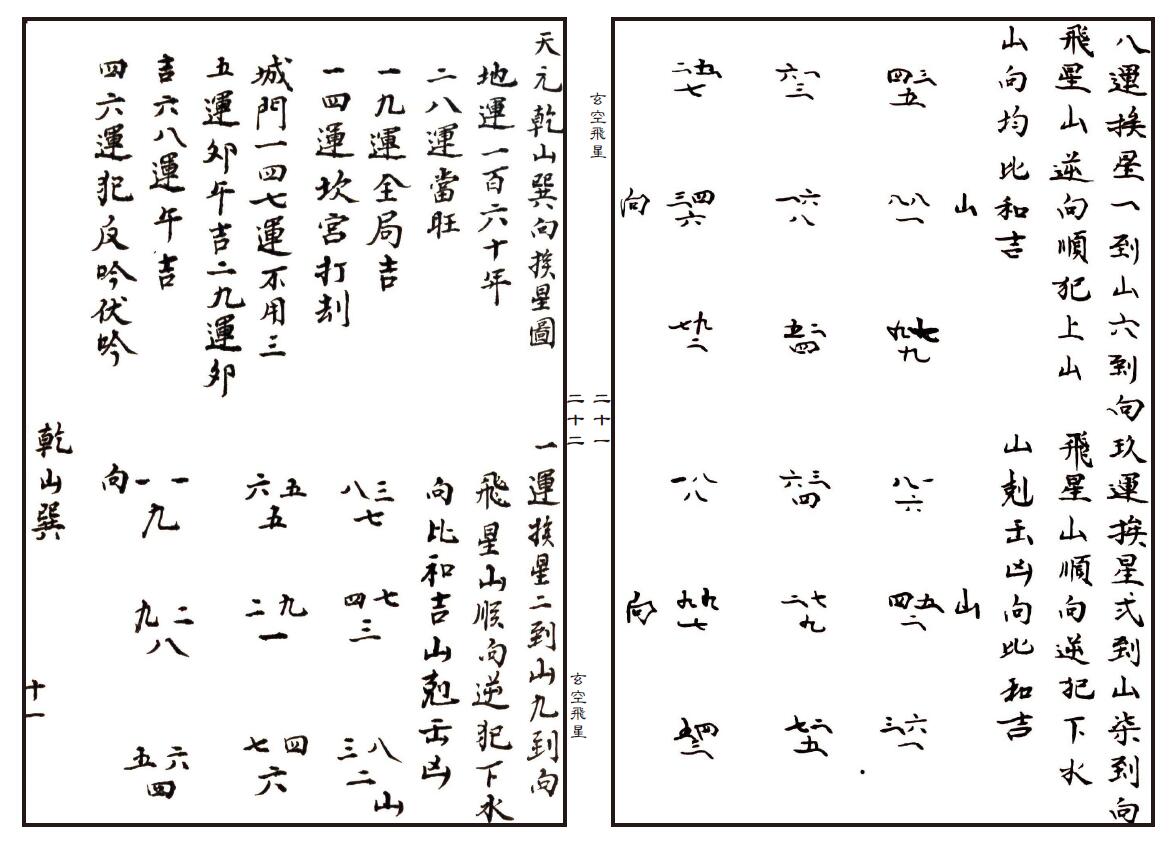 八運挨星一到山六到向
飛星山逆向順犯上山
山向均比和吉
山
四三
五
八八
一
九七
九
六一
三
一六
八
五二
四
二五
七
三四
六
七九
二
向
玖運挨星弍到山柒到向
飛星山順向逆犯下水
山剋出凶向比和吉
山
八一
六
四五
二
三六
一
六三
四
二七
九
七二
五
一八
八
九九
七
五四
三
向
玄空飛星
二十一
天元乾山巽向挨星圖
地運一百六十年
二八運當旺
一九運全局吉
一四運坎宮打刼
城門一四七運不用三
五運夘午吉二九運夘
吉六八運午吉
四六運犯反吟伏吟
一運挨星二到山九到向
飛星山順向逆犯下水
向比和吉山剋出凶
八三
七
四七
三
三八
二
山
六五
五
二九
一
七四
六
向
一一
九
九二
八
五六
四
乾山巽
十一
二十二
玄空飛星